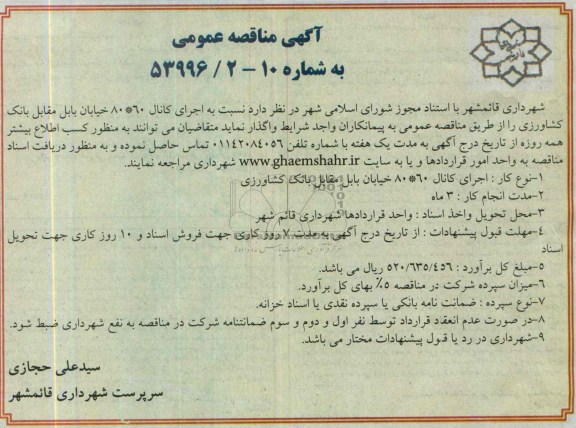 آگهی مناقصه عمومی
به شماره ۱۰ - ۲ / ۵۳۹۹۶
شهرداری قائمشهر با استناد مجوز شورای اسلامی شهر در نظر دارد نسبت به اجرای کانال ۶۰*۸۰ خیابان بابل مقابل بانک
کشاورزی را از طریق مناقصه عمومی به پیمانکاران واجد شرایط واگذار نماید متقاضیان می توانند به منظور کسب اطلاع بیشتر
همه روزه از تاریخ درج آگهی به مدت یک هفته با شماره تلفن ۰۱۱۴۲۰۸۴۰۵۶ تماس حاصل نموده و به منظور دریافت اسناد
مناقصه به واحد امور قراردادها و یا به سایت www.ghaemshahr.ir شهرداری مراجعه نمایند.
۱-نوع کار : اجرای کانال ۶۰*۸۰ خیابان بابل مقابل بانک کشاورزی
۲-مدت انجام کار : ۳ ماه
۳-محل تحویل واخذ اسناد : واحد قراردادها شهرداری قائم شهر
۴-مهلت قبول پیشنهادات : از تاریخ درج آگهی به مدت ۷ روز کاری جهت فروش اسناد و ۱۰ روز کاری جهت تحویل
اسناد
۵-مبلغ کل برآورد : ۵۲۰/۶۳۵/۴۵۶ ریال می باشد.
۶-میزان سپرده شرکت در مناقصه ۵٪ بهای کل برآورد.
۷-نوع سپرده : ضمانت نامه بانکی یا سپرده نقدی یا اسناد خزانه.
۸-در صورت عدم انعقد قرارداد توسط نفر اول و دوم و سوم ضمانتنامه شرکت در مناقصه به نفع شهرداری ضبط شود.
۹-شهرداری در رد یا قبول پیشنهادات مختار می باشد.
سیدعلی حجازی
سرپرست شهرداری قائمشهر